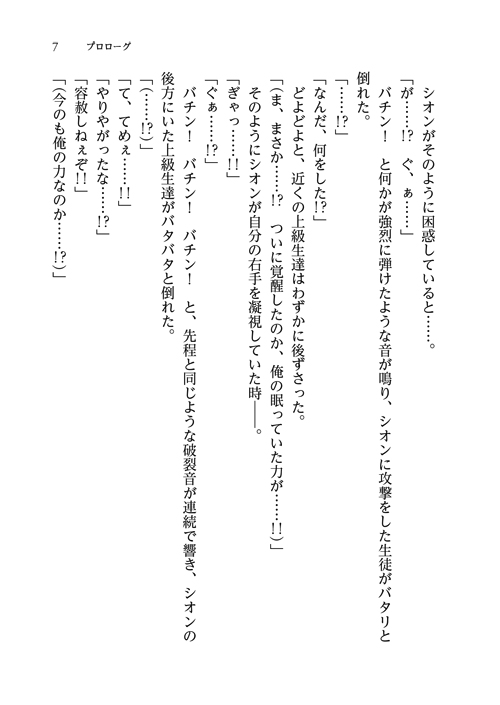 7　プロローグ
　シオンがそのように困惑していると……。
「が……!?　ぐ、ぁ……」
　バチン！　と何かが強烈に弾けたような音が鳴り、シオンに攻撃をした生徒がバタリと
倒れた。
「……!?」
「なんだ、何をした!?」
　どよどよと、近くの上級生達はわずかに後ずさった。
「（ま、まさか……!?　ついに覚醒したのか、俺の眠っていた力が……!!）」
　そのようにシオンが自分の右手を凝視していた時――。
「ぎゃっ……!!」
「ぐぁ……!?」
　バチン！　バチン！　バチン！　と、先程と同じような破裂音が連続で響き、シオンの
後方にいた上級生達がバタバタと倒れた。
「（……!?）」
「て、てめぇ……!!」
「やりやがったな……!?」
「容赦しねぇぞ!!」
「（今のも俺の力なのか……!?）」